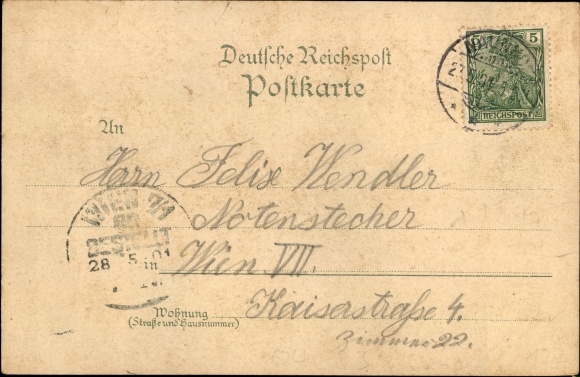 5
REICHSPOST
Deutsche Reichspost
Postkarte
An
Herrn Felix Wendler
Notenstecher
WIEN 7/1
28 5 01
in Wien VII.
Wohnung
(Straße und Hausnummer)
Kaiserstraße 4.
Zimmer 22.